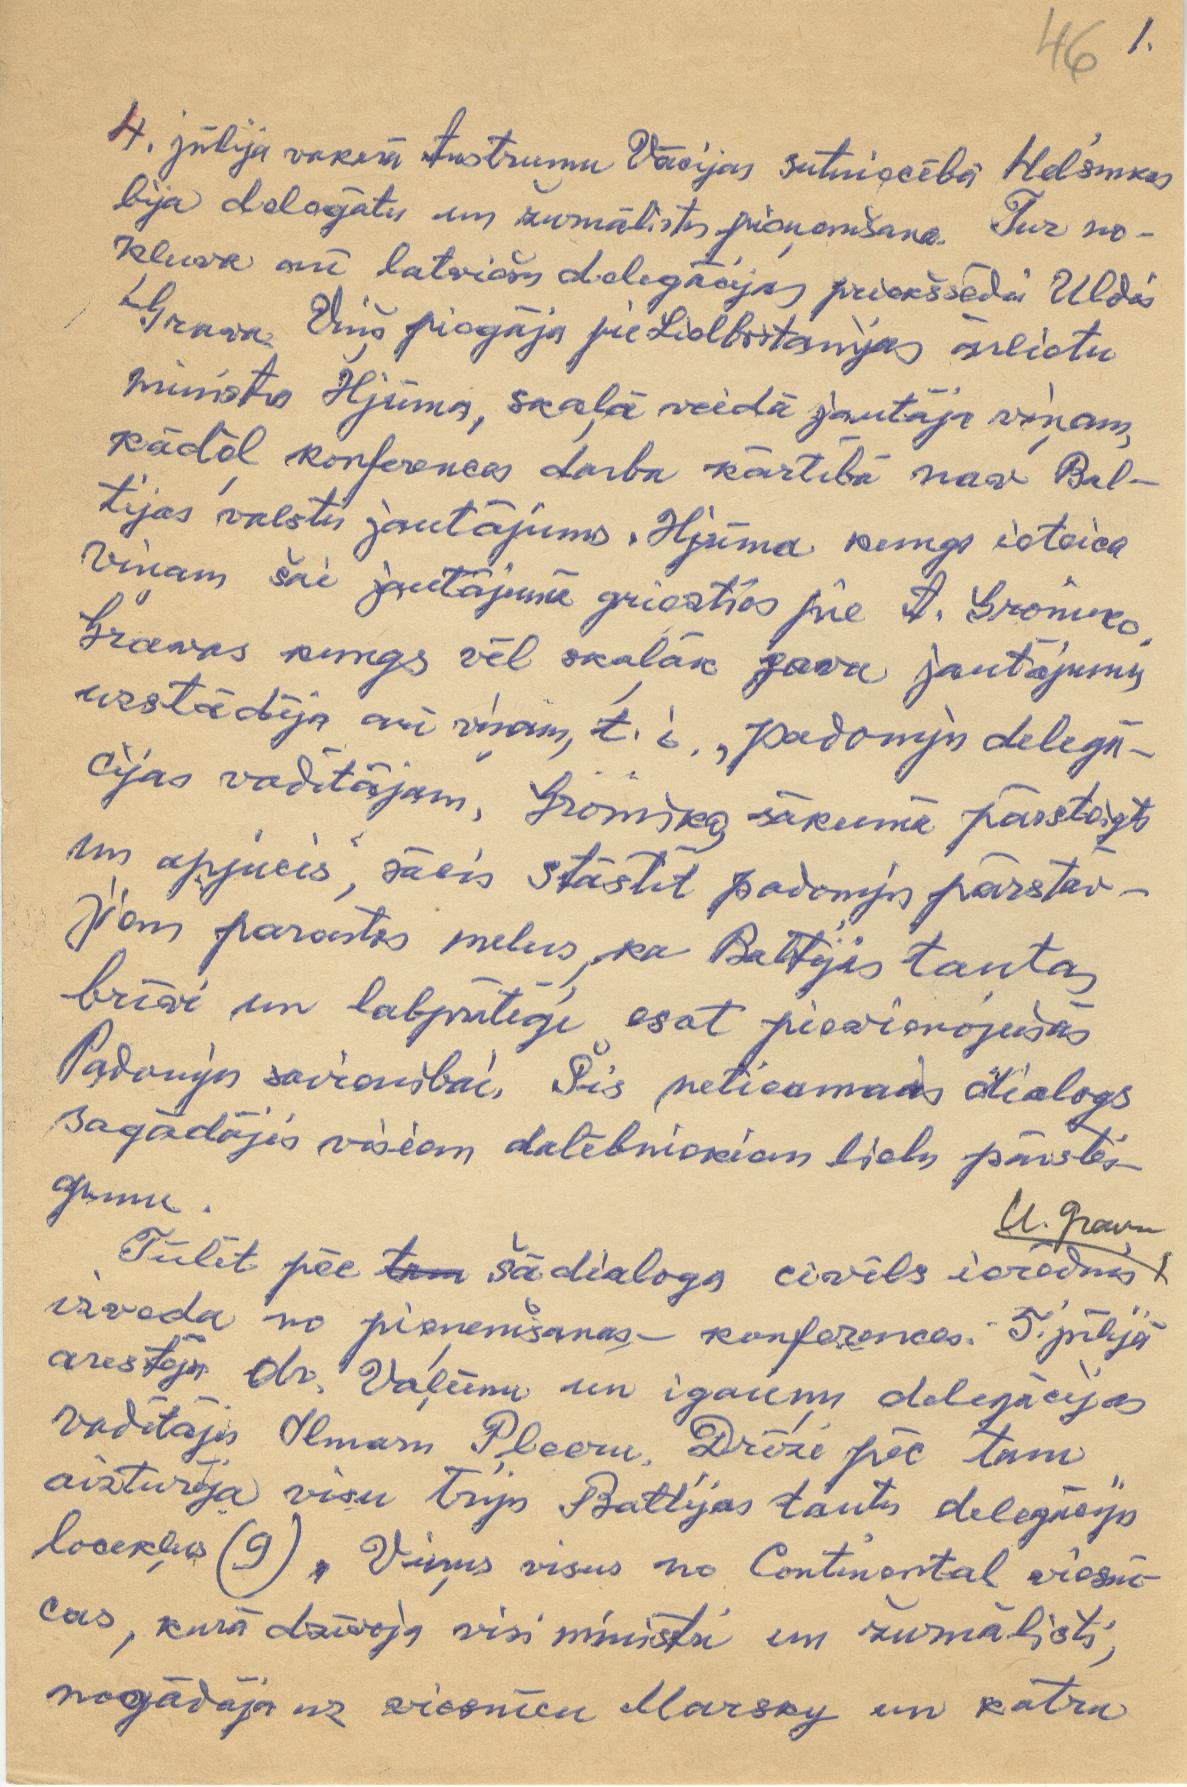 46 1.
4. jūlija vakarā Austrumu Vācijas sūtniecībā Helsinkos
bija delegātu un žurnālistu pieņemšana. Tur no-
kļuva arī latviešu delegācijas priekšsēdis Uldis
Grava. Viņš piegāja pie Lielbritanijas ārlietu
ministra Hjūma, skaļā veidā jautāja viņam,
kādēļ konferences darba kārtībā nav Bal-
tijas valstu jautājums. Hjūma kungs ieteica
viņam šai jautājumā griezties pie A. Gromiko.
Gravas kungs vēl skaļāk savu jautājumu
uzstādīja arī viņam, t. i., padomju delegā-
cijas vadītājam. Gromiko, sākumā pārsteigts
un apjucis, sācis stāstīt padomju pārstāv-
jiem parastos melus, ka Baltijas tautas
brīvi un labprātīgi esot pievienojušās
Padomju savienībai. Šis neticamais dialogs
sagādājis visiem dalībniekiem lielu pārstei-
gumu.
U. Gravu
Tūlīt pēc tam šā dialoga civīls ierēdnis
izveda no pieņemšanas - konferences. 5. jūlijā
arestēja dr. Vaļūnu un igauņu delegācijas
vadītāju Ilmaru Pleeru. Drīzi pēc tam
aizturēja visu triju Baltijas tautu delegāciju
locekļus (9). Viņus visus no Continental viesnī-
cas, kurā dzīvoja visi ministri un žurnālisti,
nogādāja uz viesnīcu Marsky un katru